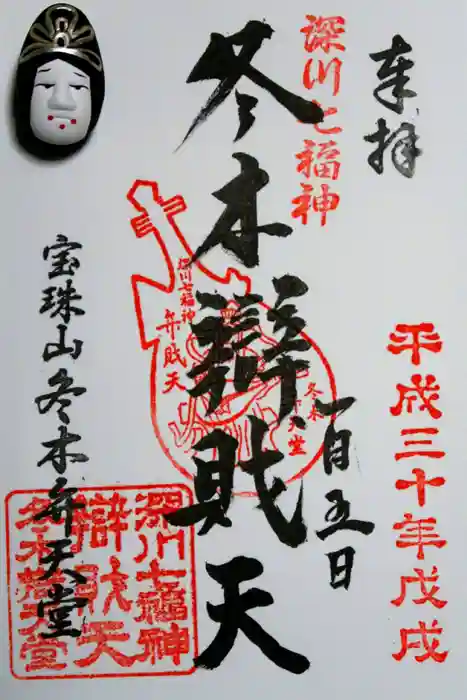 奉拝
深川七福神
平成三十年戊戌
一月五日
冬木辯財天
深川七福神
弁財天
冬木弁天堂
宝珠山冬木弁天堂
深川七福神
辯財天
冬木弁天堂